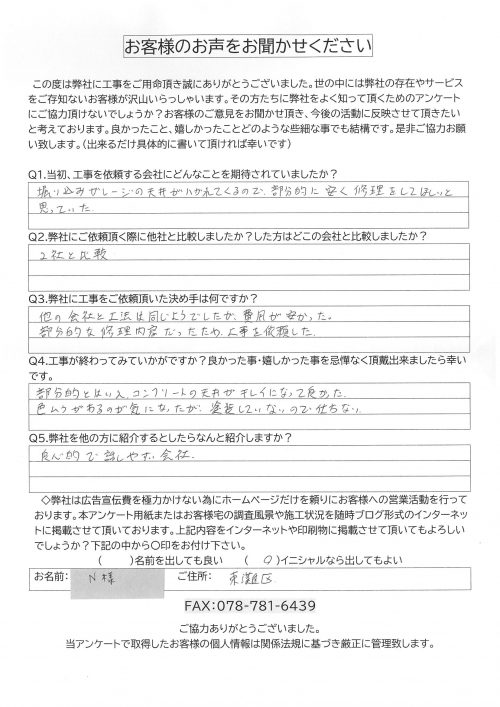 お客様のお声をお聞かせください
この度は弊社に工事をご用命頂き誠にありがとうございました。世の中には弊社の存在やサービス
をご存知ないお客様が沢山いらっしゃいます。その方たちに弊社をよく知って頂くためのアンケート
にご協力頂けないでしょうか？お客様のご意見をお聞かせ頂き、今後の活動に反映させて頂きたい
と考えております。良かったこと、嬉しかったことどのような些細な事でも結構です。是非ご協力お願
い致します。（出来るだけ具体的に書いて頂ければ幸いです）
Q1.当初、工事を依頼する会社にどんなことを期待されていましたか？
堀り込みガレージの天井がハガれてくるので、部分的に安く修理をしてほしいと
思っていた
Q2.弊社にご依頼頂く際に他社と比較しましたか？した方はどこの会社と比較しましたか？
2社と比較
Q3.弊社に工事をご依頼頂いた決め手は何ですか？
他の会社と工法は同じようでしたが、費用が安かった。
部分的な修理内容だったため、工事を依頼した
Q4.工事が終わってみていかがですか？良かった事・嬉しかった事を忌憚なく頂戴出来ましたら幸い
です。
部分的とはいえ、コンクリートの天井がキレイになって良かった
色ムラがあるのが気になったが、塗装していないので仕方ない
Q5.弊社を他の方に紹介するとしたらなんと紹介しますか？
良心的で話しやすい会社
◇弊社は広告宣伝費を極力かけない為にホームページだけを頼りにお客様への営業活動を行って
おります。本アンケート用紙またはお客様宅の調査風景や施工状況を随時ブログ形式のインターネッ
トに掲載させて頂いております。上記内容をインターネットや印刷物に掲載させて頂いてもよろしい
でしょうか？下記の中から〇印をお付け下さい。
（　　）名前を出しても良い　（ ○ ）イニシャルなら出してもよい
お名前： N様 ご住所： 東灘区
FAX：078-781-6439
ご協力ありがとうございました。
当アンケートで取得したお客様の個人情報は関係法規に基づき厳正に管理致します。